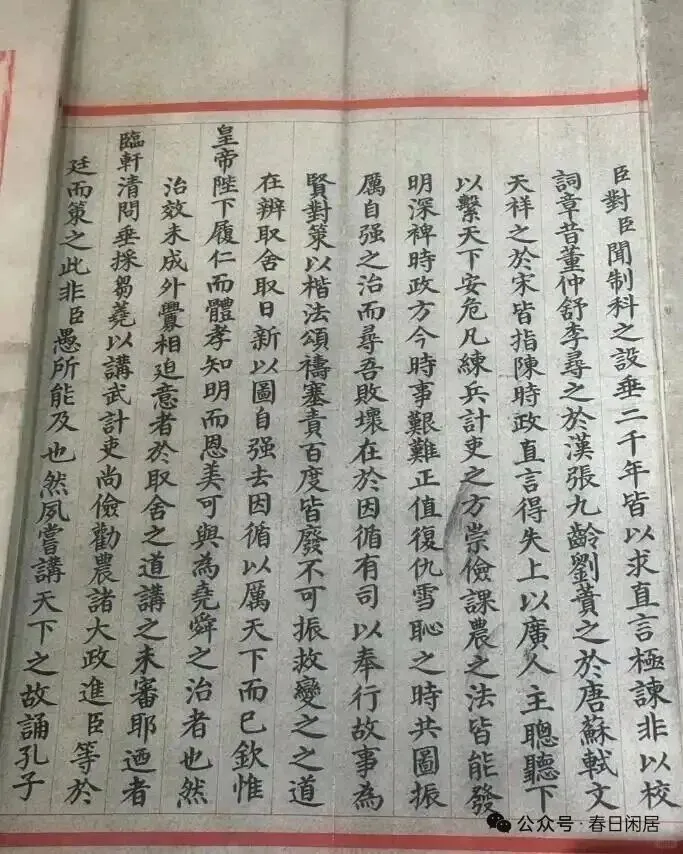 臣對臣聞制科之設垂二千年皆以求直言極諫非以校
詞章昔董仲舒李尋之於漢張九齡劉蕡之於唐蘇軾文
天祥之於宋皆指陳時政直言得失上以廣人主聰聽下
以繫天下安危凡練兵計吏之方崇儉課農之法皆能發
明深裨時政方今時事艱難正值復仇雪恥之時共圖振
厲自强之治而尋吾敗壞在於因循有司以奉行故事為
賢對策以楷法頌禱塞責百度皆廢不可振救變之之道
在辨取舍取日新以圖自强去因循以厲天下而已欽惟
皇帝陛下履仁而體孝知明而恩美可與為堯舜之治者也然
治效未成外釁相迫意者於取舍之道講之未審耶迺者
臨軒清問垂採芻蕘以講武計吏尚儉勸農諸大政進臣等於
廷而策之此非臣愚所能及也然夙嘗講天下之故誦孔子
公众号·春日闲居